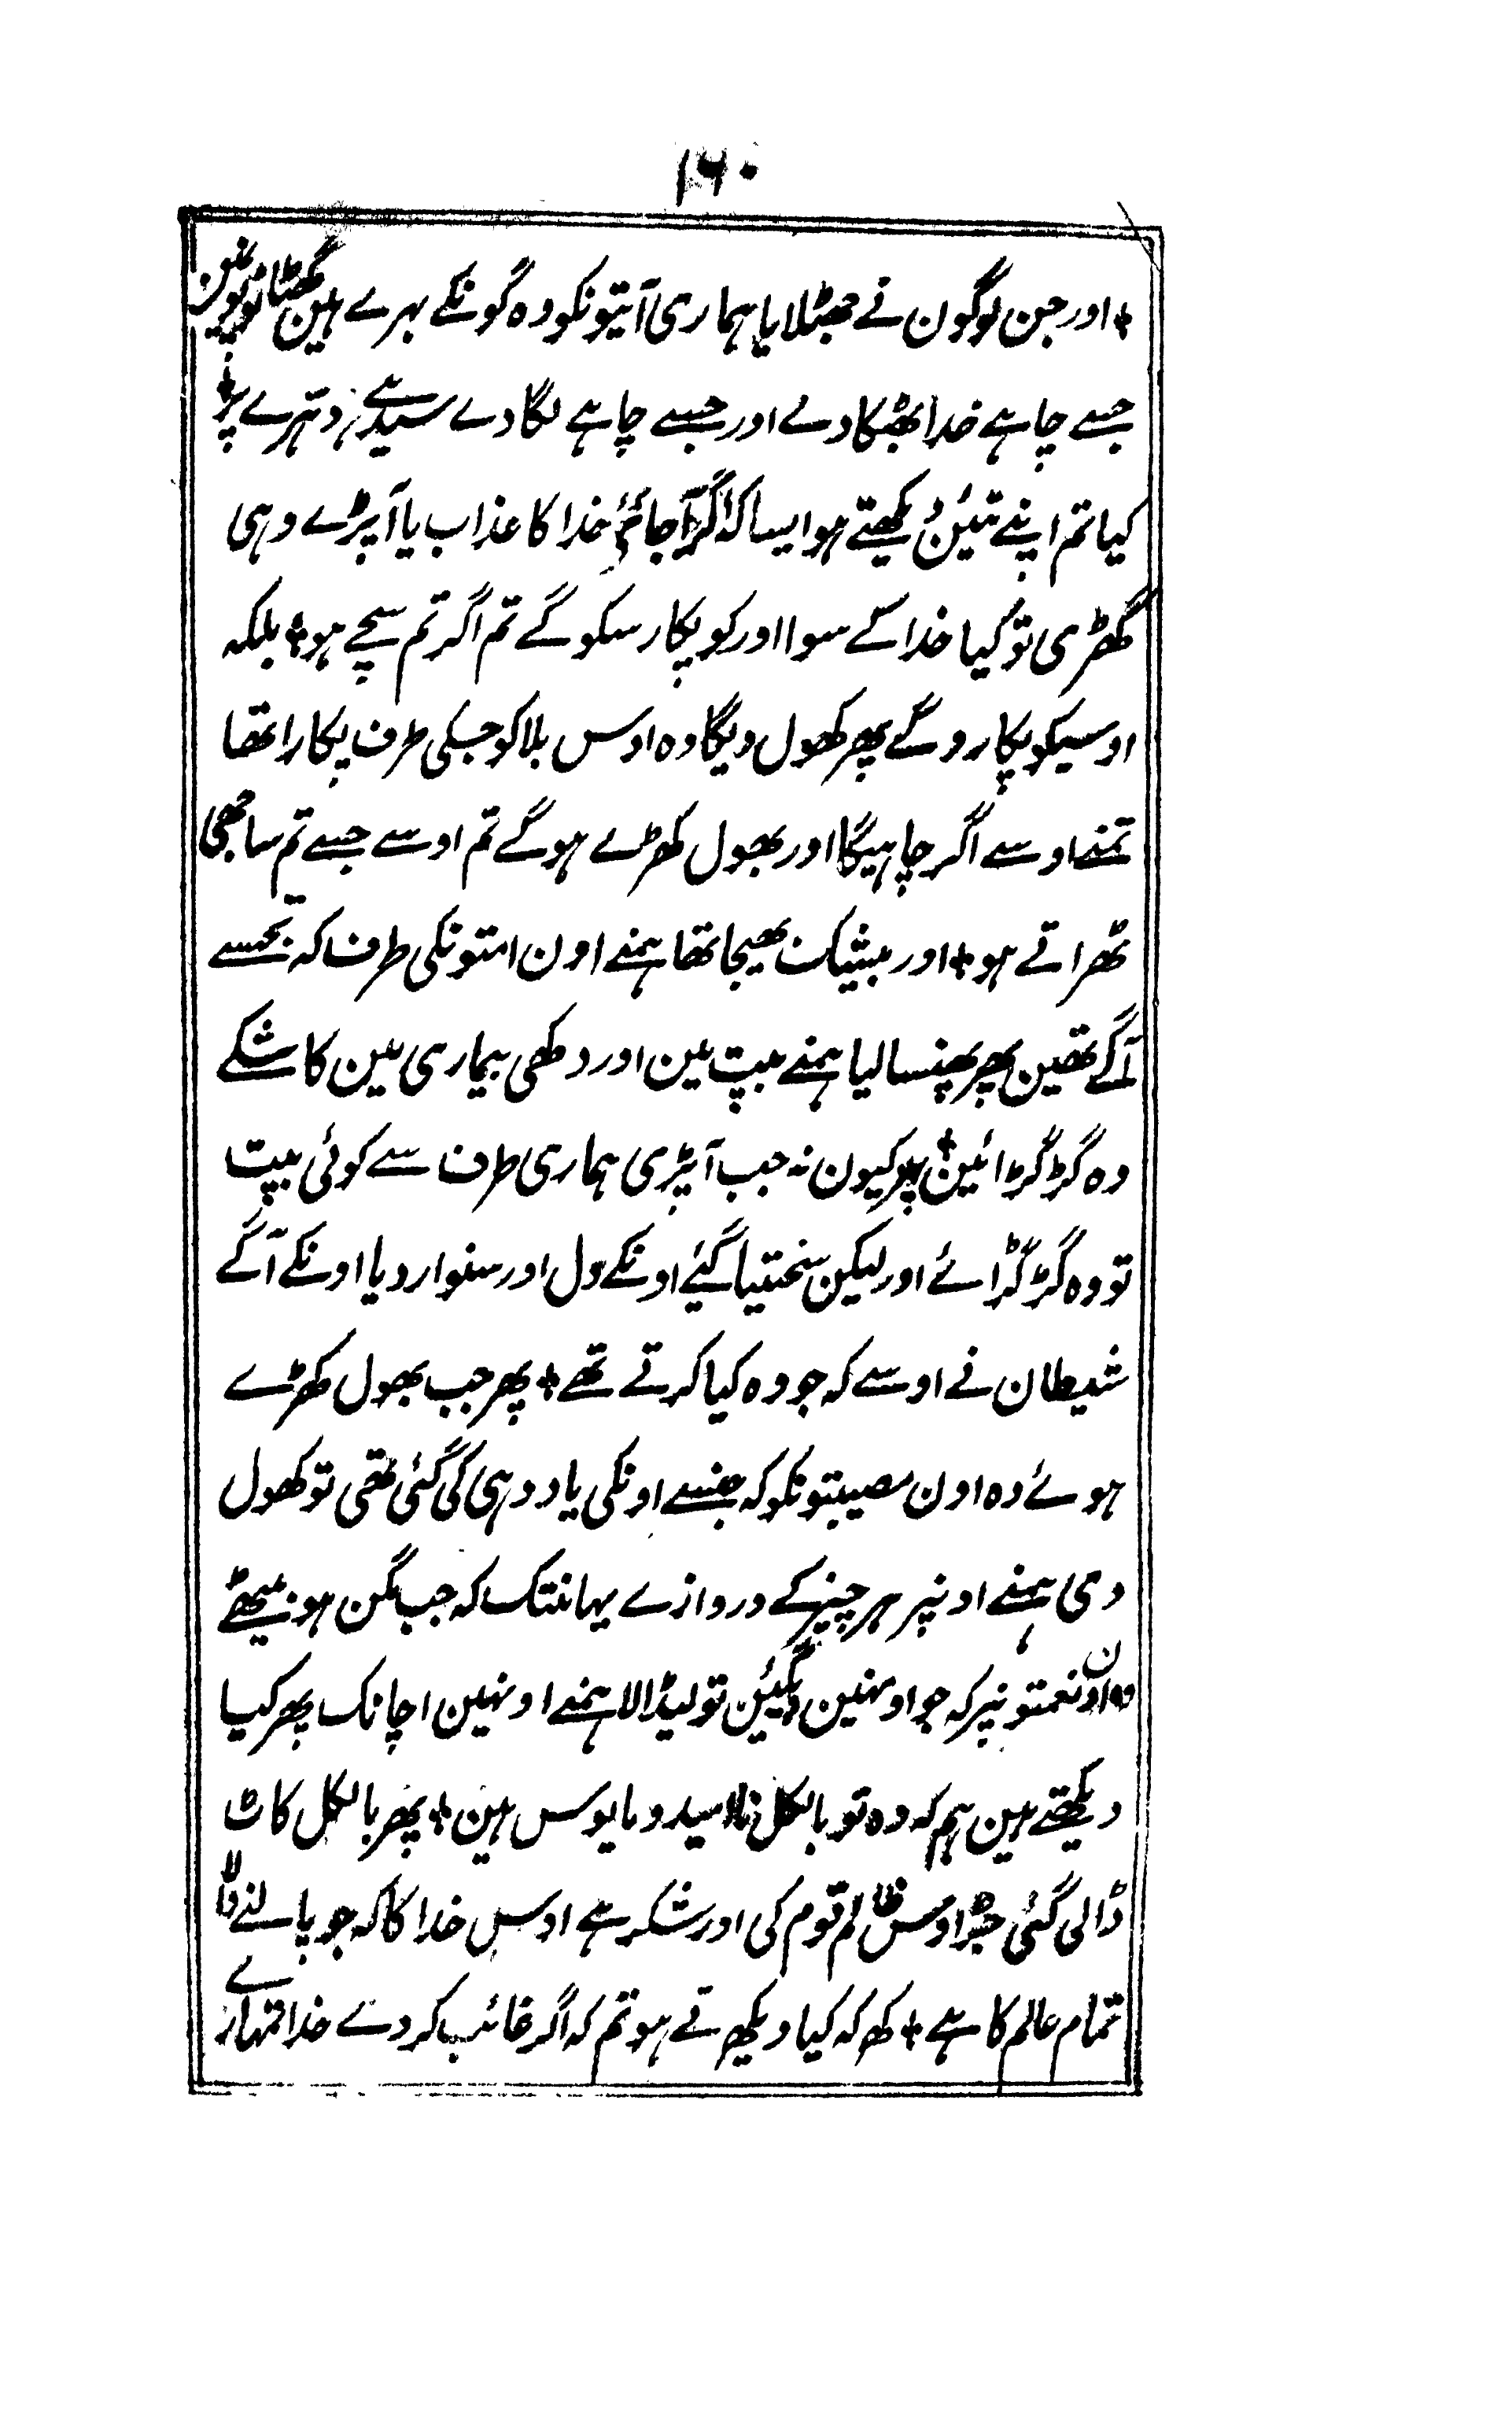 ۱۶۰
* اور جن لوگون نے جھٹلایا ہماری آیتونکو وہ گونگے بہرے ہین گھٹا ٹوپ مین
جسے چاہے خدا بھٹکا دے اور جسے چاہے لگا دے سیدھے دہرے پر *
کیا تم اپنے تئین دیکھتے ہو ایسا کہ اگر آجائے خدا کا عذاب یا آپڑے وہی
گھڑی تو کیا خدا کے سوا اور کو پکار سکو گے تم اگر تم سچے ہو * بلکہ
اوسیکو پکارو گے پھر کھول دیگا وہ اوس بلا کو جسکی طرف پکارا تھا
تمنے اوسے اگر چاہیگا اور بھول کھڑے ہو گے تم اوسے جسے تم ساجھی
ٹھراتے ہو * اور بیشک بھیجا تھا ہمنے اون امتونکی طرف کہ تجسے
آگے تھین پھر پھنسا لیا ہمنے بپت مین اور دکھی بیماری مین کاشکے
وہ گڑگڑائین * پھر کیون نہ جب آپڑی ہماری طرف سے کوئی بپت
تو وہ گڑگڑائے اور لیکن سختیا گئے اونکے دل اور سنوار دیا اونکے آگے
شیطان نے اوسے کہ جو وہ کیا کرتے تھے * پھر جب بھول کھڑے
ہوئے وہ اون مصیبتونکو کہ جنسے اونکی یاد دہی کی گئی تھی تو کھول
دی ہمنے اونپر ہر چیز کے دروازے یہانتک کہ جب مگن ہو بیٹھے
وہ اون نعمتونپر کہ جو اونہین دیگئین تو لیڈالا ہمنے اونہین اچانک پھر کیا
دیکھتے ہین ہم کہ وہ تو بالکل ناامید و مایوس ہین * پھر بالکل کاٹ
ڈالی گئی جڑ اوس ظالم قوم کی اور شکر ہے اوس خدا کا کہ جو پالنے والا
تمام عالم کا ہے * کھ کہ کیا دیکھتے ہو تم کہ اگر غائب کر دے خدا تمہارے